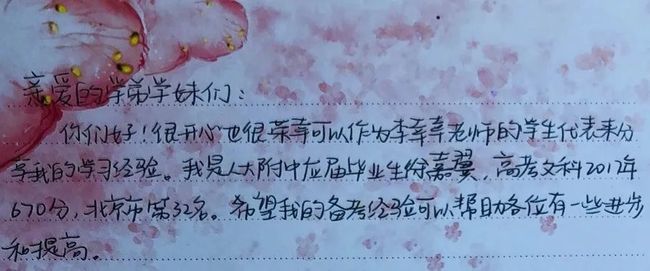 亲爱的学弟学妹们：
你们好！很开心也很荣幸可以作为李幸幸老师的学生代表来分
享我的学习经验。我是人大附中应届毕业生徐嘉翼，高考文科2012年
670分，北京市第32名。希望我的备考经验可以帮助各位有一些进步
和提高。